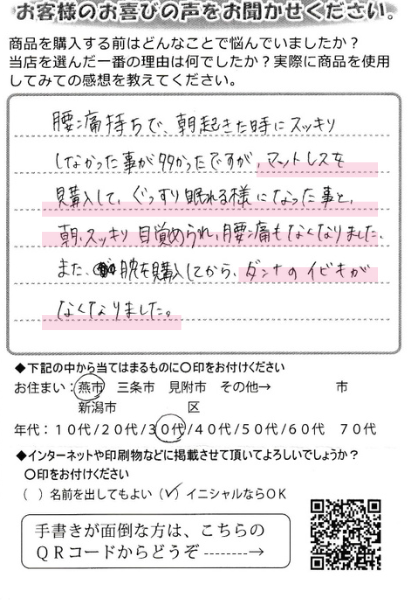 お客様のお喜びの声をお聞かせください。
商品を購入する前はどんなことで悩んでいましたか？
当店を選んだ一番の理由は何でしたか？実際に商品を使用
してみての感想を教えてください。
腰痛持ちで、朝起きた時にスッキリ
しなかった事が多かったですが、マットレスを
購入して、ぐっすり眠れる様になった事と、
朝スッキリ目覚められ、腰痛もなくなりました。
また、枕を購入してから、ダンナのイビキが
なくなりました。
◆下記の中から当てはまるものに〇印をお付けください
お住まい：燕市 三条市 見附市 その他→ 市
新潟市 区
年代：１０代/２０代/３０代/４０代/５０代/６０代 ７０代
◆インターネットや印刷物などに掲載させて頂いてよろしいでしょうか？
〇印をお付けください
（ ）名前を出してもよい（✓）イニシャルならＯＫ
手書きが面倒な方は、こちらの
ＱＲコードからどうぞ--------→